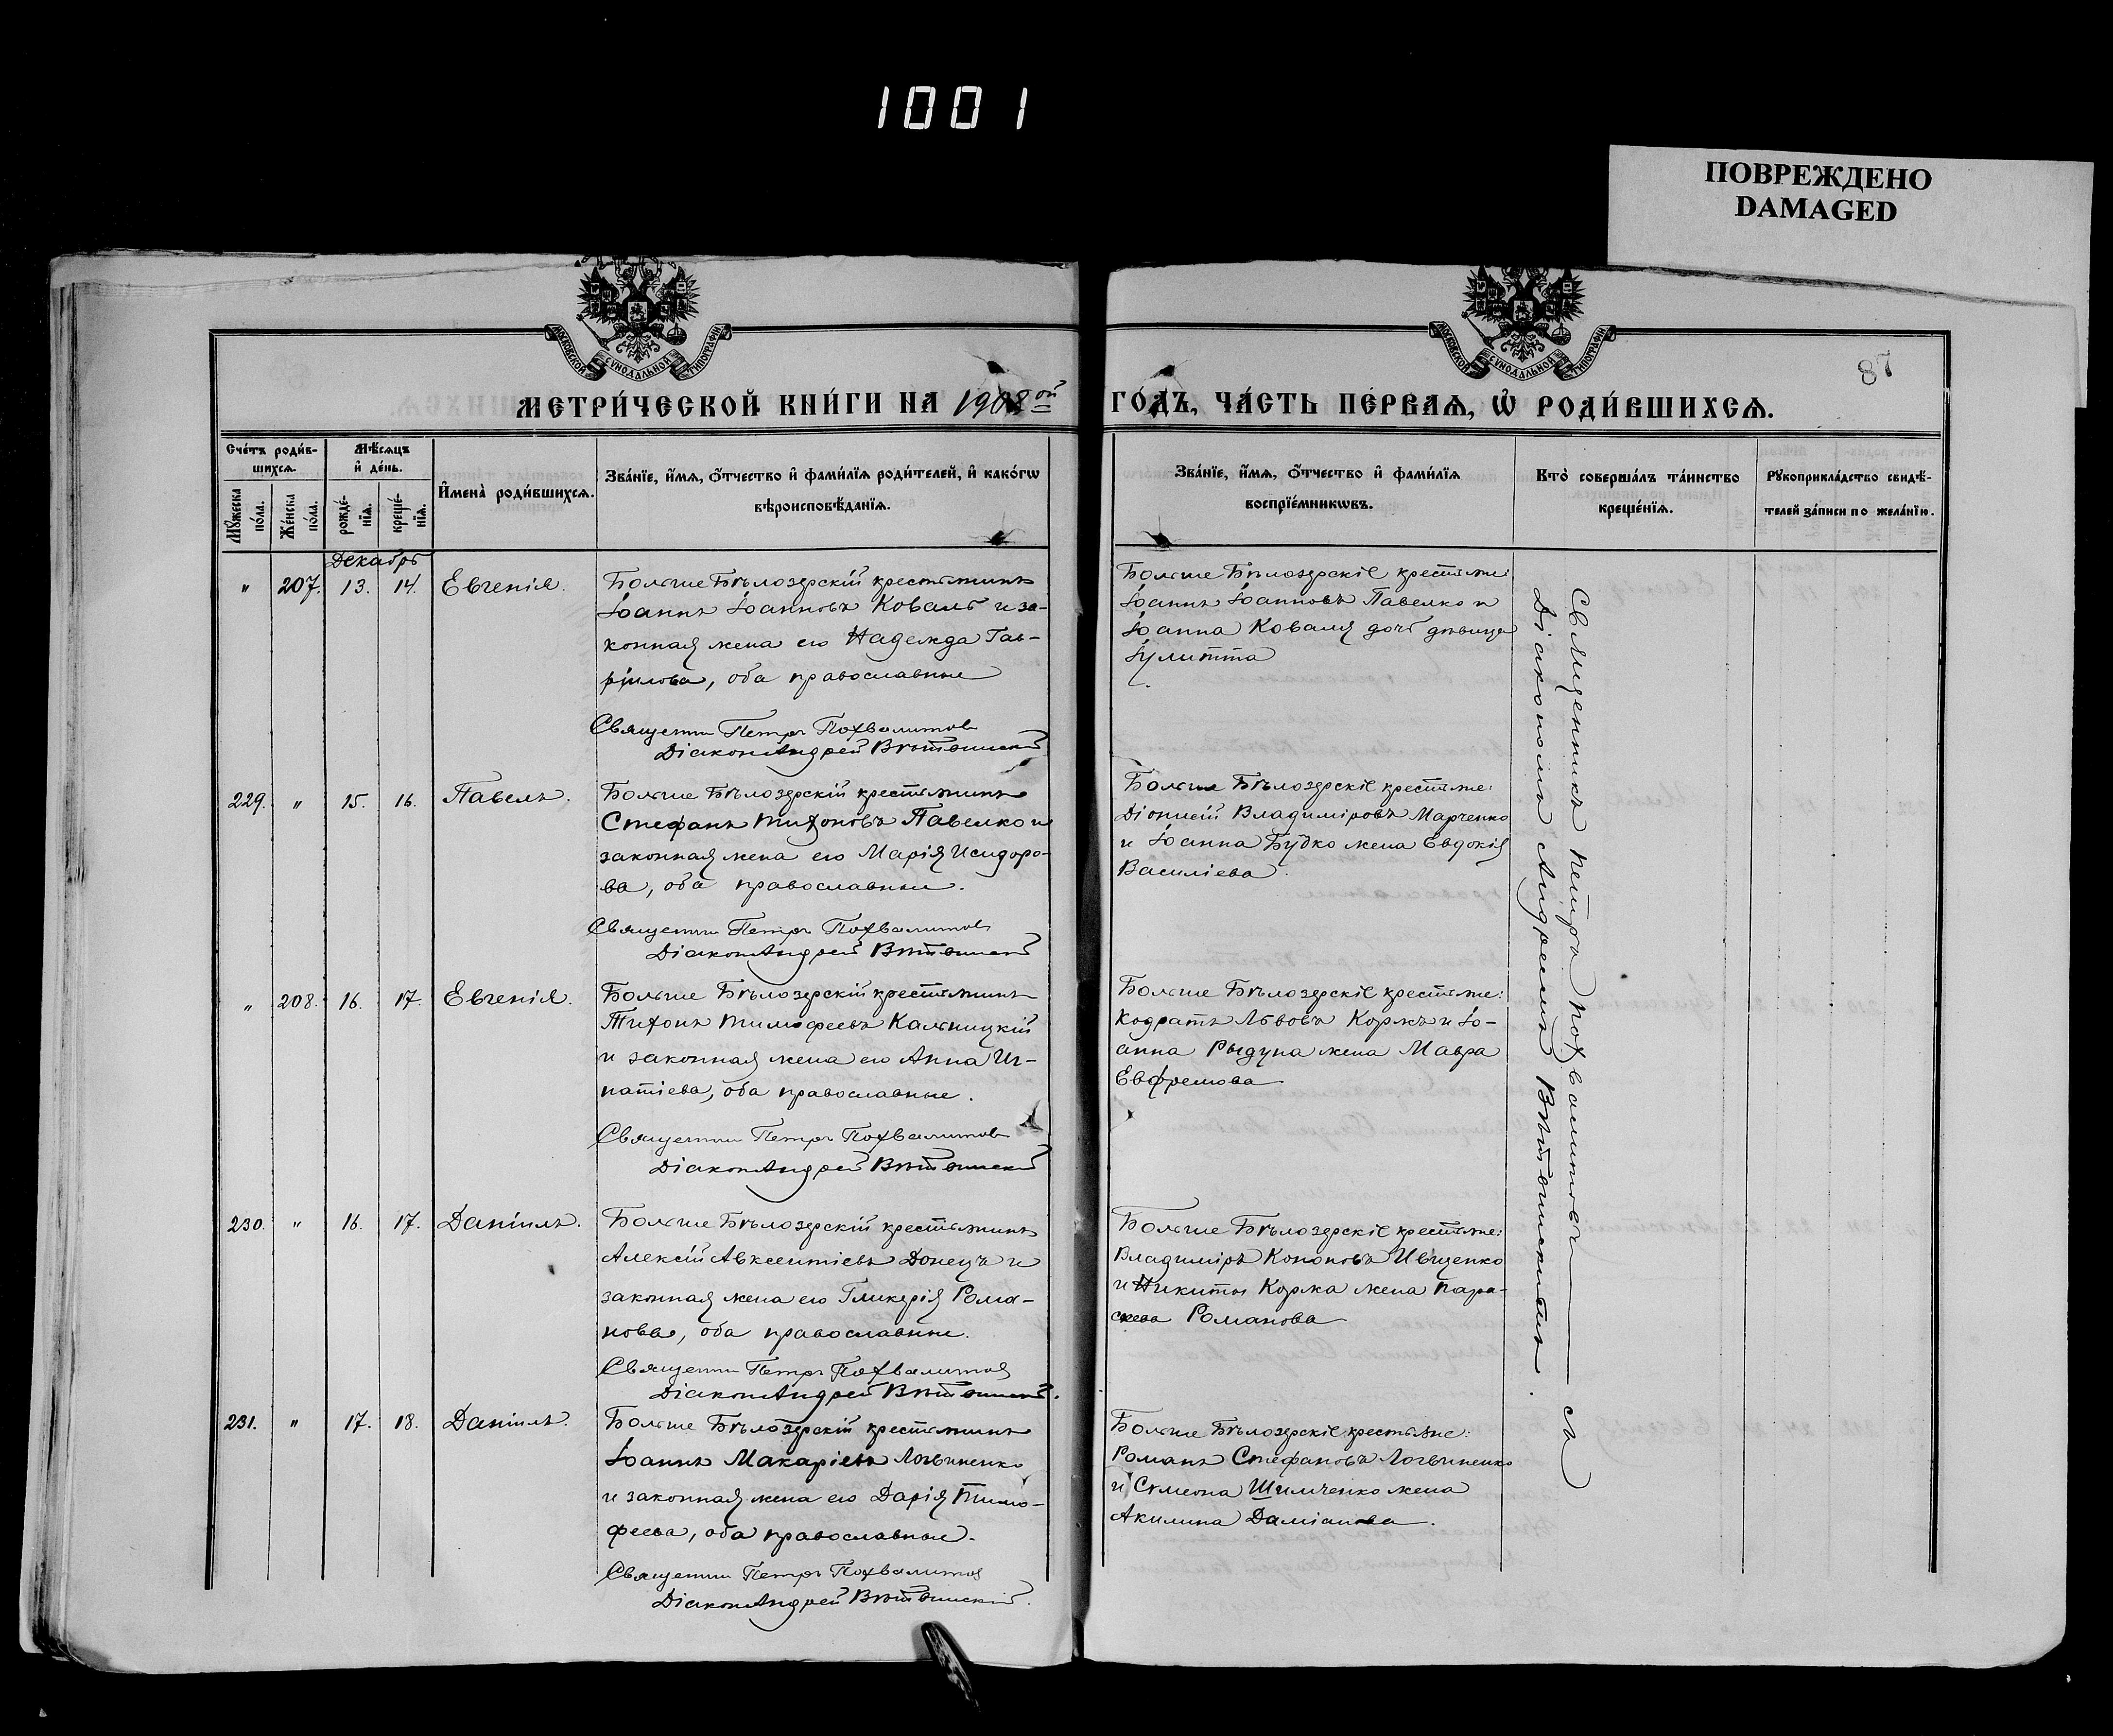 1001
ПОВРЕЖДЕНО
DAMAGED
МОСКОВСКОЙ СѴНОДАЛЬНОЙ ТИПОГРАФІИ
МОСКОВСКОЙ СѴНОДАЛЬНОЙ ТИПОГРАФІИ
87
МЕТРИ́ЧЕСКОЙ КНИ́ГИ НА 1908ой ГО́ДЪ, ЧА́СТЬ ПЕ́РВАѦ, Ѡ҆ РОДИ́ВШИХСѦ.
Сче́тъ роди́в-
шихсѧ.
Мѣ́сѧцъ
и҆ де́нь.
Мꙋ́жеска по́ла.
Же́нска по́ла.
рожде́-
нїѧ.
креще́-
нїѧ.
И҆мена̀ роди́вшихсѧ.
Зва́нїе, и҆́мѧ, ѻ҆́тчество и҆ фами́лїѧ роди́телей, и҆ како́гѡ
вѣроисповѣ́данїѧ.
Зва́нїе, и҆́мѧ, ѻ҆́тчество и҆ фами́лїѧ
воспрїе́мникѡвъ.
Кто̀ соверша́лъ та́инство
креще́нїѧ.
Рꙋкоприкла́дство свидѣ́-
телей за́писи по жела́нїю.
Декабрь
" 207. 13. 14. Евгенія.
Больше Бѣлозерскій крестьянинъ
Іоаннъ Іоанновъ Коваль и за-
конная жена его Надежда Гав-
ріилова, оба православные
Священникъ Петръ Похвалитовъ
Діаконъ Андрей Вѣтвинскій
Больше Бѣлозерскіе крестьяне:
Іоаннъ Іоанновъ Павелко и
Іоанна Коваля дочь дѣвица
Іулитта
229. " 15. 16. Павелъ.
Больше Бѣлозерскій крестьянинъ
Стефанъ Тихоновъ Павелко и
законная жена его Марія Исидоро-
ва, оба православные.
Священникъ Петръ Похвалитовъ
Діаконъ Андрей Вѣтвинскій
Больше Бѣлозерскіе крестьяне:
Діонисій Владиміровъ Марченко
и Іоанна Будко жена Евдокія
Василіева.
" 208. 16. 17. Евгенія.
Больше Бѣлозерскій крестьянинъ
Тихонъ Тимофеевъ Кальницкій
и законная жена его Анна Иг-
натіева, оба православные.
Священникъ Петръ Похвалитовъ
Діаконъ Андрей Вѣтвинскій
Больше Бѣлозерскіе крестьяне:
Кодратъ Львовъ Коржъ и Іо-
анна Рыдуна жена Мавра
Евфремова
230. " 16. 17. Даніилъ.
Больше Бѣлозерскій крестьянинъ
Алексій Авксентіевъ Донецъ и
законная жена его Гликерія Рома-
нова, оба православные.
Священникъ Петръ Похвалитовъ
Діаконъ Андрей Вѣтвинскій.
Больше Бѣлозерскіе крестьяне:
Владиміръ Кононовъ Ивщенко
и Никиты Коржа жена Пара-
скева Романова
231. " 17. 18. Даніилъ.
Больше Бѣлозерскій крестьянинъ
Іоаннъ Макаріевъ Логвиненко
и законная жена его Дарія Тимо-
феева, оба православные.
Священникъ Петръ Похвалитовъ
Діаконъ Андрей Вѣтвинскій.
Больше Бѣлозерскіе крестьяне:
Романъ Стефановъ Логвиненко
и Сѵмеона Шимченко жена
Акилина Даміанова.
Священникъ Петръ Похвалитовъ съ
Діакономъ Андреемъ Вѣтвинскимъ.